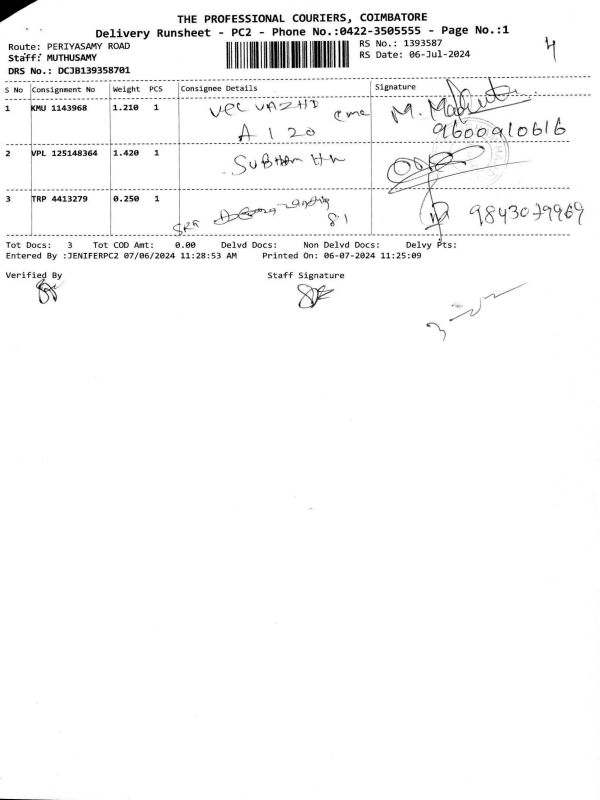 THE PROFESSIONAL COURIERS, COIMBATORE
Delivery Runsheet - PC2 - Phone No.:0422-3505555 - Page No.:1
Route: PERIYASAMY ROAD
RS No.: 1393587
Staff: MUTHUSAMY
RS Date: 06-Jul-2024
DRS No.: DCJB139358701
4
S No Consignment No Weight PCS Consignee Details Signature
1 KMU 1143968 1.210 1
A 120
9600910616
2 VPL 125148364 1.420 1
3 TRP 4413279 0.250 1
81 9843079969
Tot Docs: 3 Tot COD Amt: 0.00 Delvd Docs: Non Delvd Docs: Delvy Pts:
Entered By :JENIFERPC2 07/06/2024 11:28:53 AM Printed On: 06-07-2024 11:25:09
Verified By Staff Signature